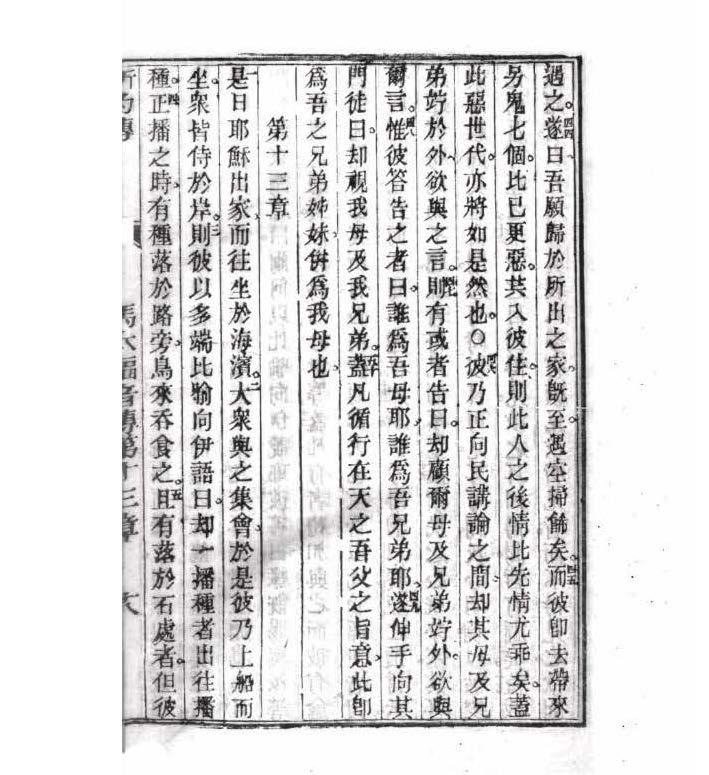 過之遂四四曰吾願歸於所出之家旣至遇空掃餙矣而四五彼卽去帶來
另鬼七個比已更惡其入彼住則此人之後情比先情尤乖矣蓋
此惡世代亦將如是然也○彼四六乃正向民講論之間却其母及兄
弟竚於外欲與之言則四七有或者告曰却顧爾母及兄弟竚外欲與
爾言惟四八彼答告之者曰誰爲吾母耶誰爲吾兄弟耶遂四九伸手向其
門徒曰却視我母及我兄弟蓋五十凡循行在天之吾父之旨意此卽
爲吾之兄弟姊妹併爲我母也
第十三章
一是日耶穌出家而往坐於海濱二大衆與之集會於是彼乃上船而
坐衆皆侍於岸三則彼以多端比喻向伊語曰却一播種者出往播
種四正播之時有種落於路旁鳥來吞食之五且有落於石處者但彼
新約傳 馬太福音傳第十三章